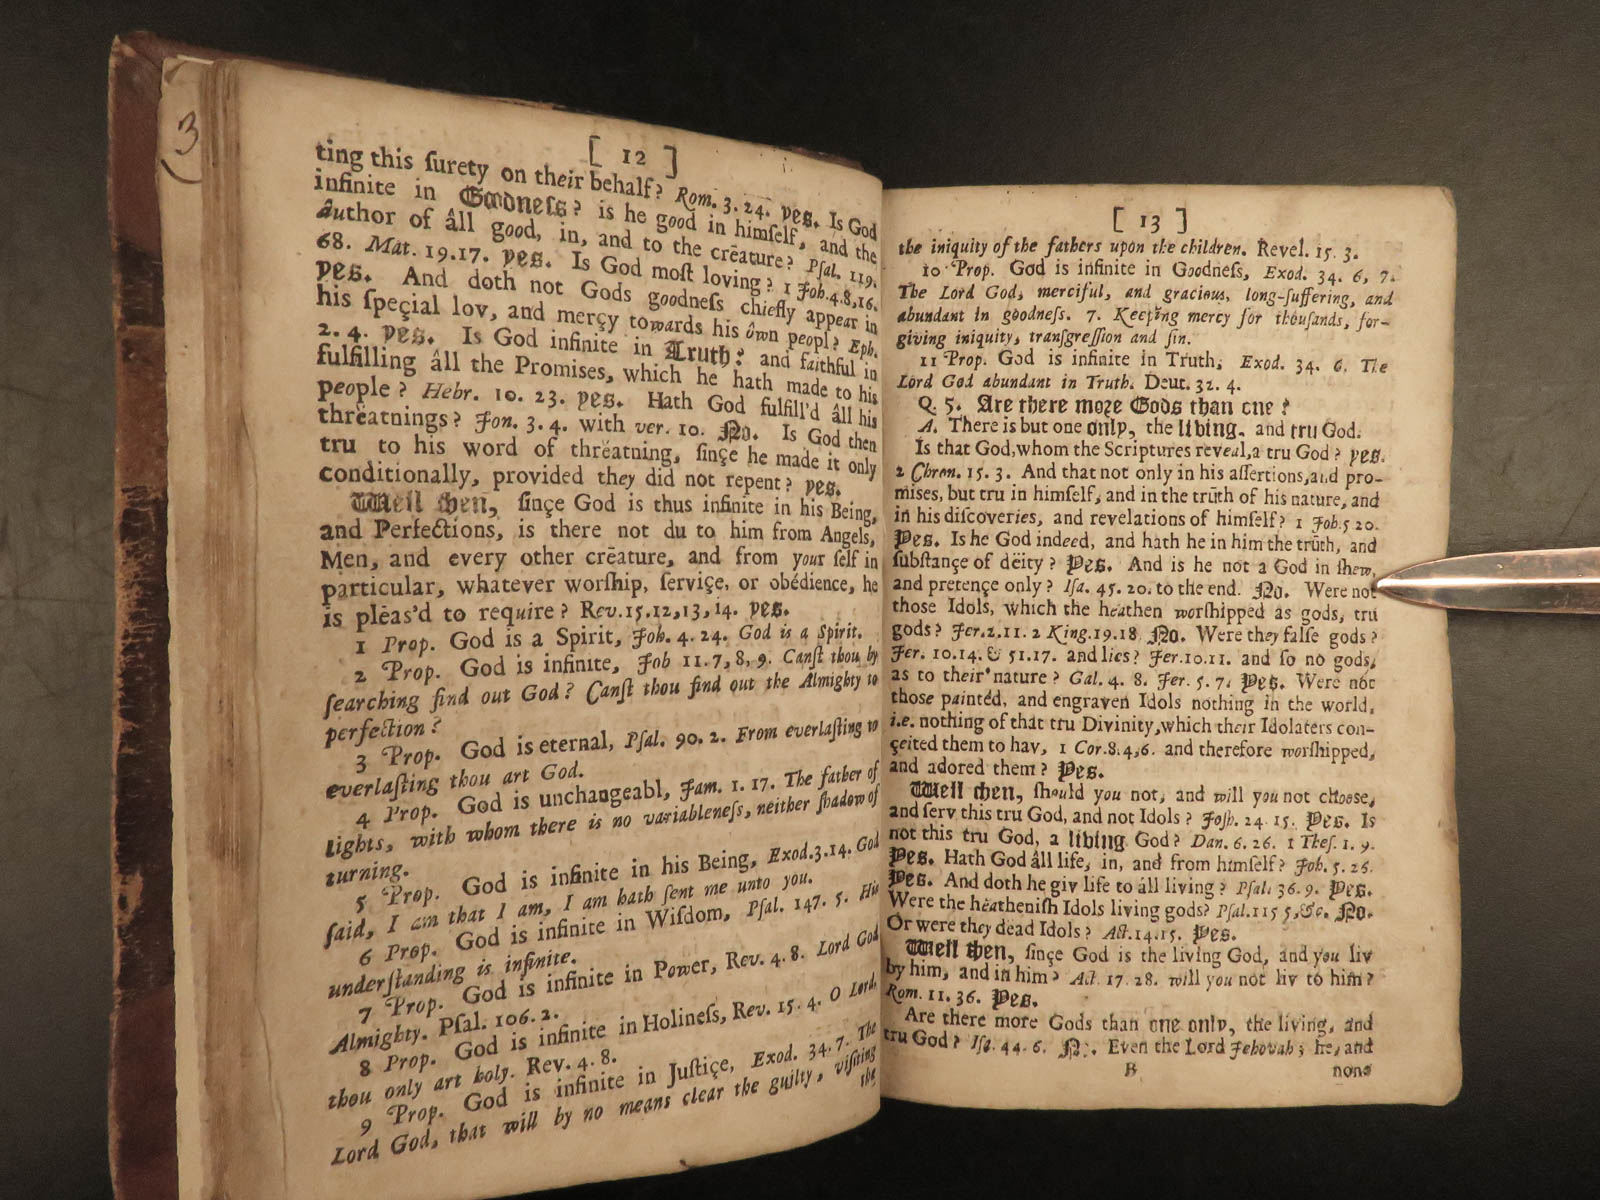 3
[ 12 ]
ting this ſurety on their behalf? Rom. 3. 24. yes. Is God
infinite in Goodneſs? is he good in himſelf, and the
âuthor of âll good, in, and to the crēature? Pſal. 119.
68. Mat. 19.17. yes. Is God moſt loving? 1 Joh.4.8,16.
yes. And doth not Gods goodneſs chiefly appear in
his ſpeçial lov, and merçy towards his ôwn peopl? Eph.
2. 4. yes. Is God infinite in Truth? and faithful in
fulfilling âll the Promises, which he hath made to his
people? Hebr. 10. 23. yes. Hath God fulfill'd âll his
thrēatnings? Jon. 3. 4. with ver. 10. No. Is God then
tru to his word of thrēatning, ſinçe he made it only
conditionally, provided they did not repent? yes.
Well then, ſinçe God is thus infinite in his Being,
and Perfections, is there not du to him from Angels,
Men, and every other crēature, and from your ſelf in
particular, whatever worſhip, ſerviçe, or obédience, he
is plēas'd to require? Rev.15.12,13,14. yes.
1 Prop. God is a Spirit, Joh. 4. 24. God is a Spirit.
2 Prop. God is infinite, Job 11. 7, 8, 9. Canſt thou by
ſearching find out God? Canſt thou find out the Almighty to
perfection?
3 Prop. God is eternal, Pſal. 90. 2. From everlaſting to
everlaſting thou art God.
4 Prop. God is unchangeabl, Jam. 1. 17. The father of
lights, with whom there is no variableneſs, neither ſhadow of
turning.
5 Prop. God is infinite in his Being, Exod.3.14. God
ſaid, I am that I am, I am hath ſent me unto you.
6 Prop. God is infinite in Wiſdom, Pſal. 147. 5. His
underſtanding is infinite.
7 Prop. God is infinite in Power, Rev. 4. 8. Lord God
Almighty. Pſal. 106. 2.
8 Prop. God is infinite in Holineſs, Rev. 15. 4. O Lord,
thou only art holy. Rev. 4. 8.
9 Prop. God is infinite in Juſtiçe, Exod. 34. 7. The
Lord God, that will by no means clear the guilty, viſiting
the
[ 13 ]
the iniquity of the fathers upon the children. Revel. 15. 3.
10 Prop. God is infinite in Goodneſs, Exod. 34. 6, 7.
The Lord God, merciful, and gracious, long-ſuffering, and
abundant in goodneſs. 7. Keeping mercy for thouſands, for-
giving iniquity, tranſgreſſion and ſin.
11 Prop. God is infinite in Truth, Exod. 34. 6. The
Lord God abundant in Truth. Deut. 32. 4.
Q. 5. Are there more Gods than one?
A. There is but one only, the living, and tru God.
Is that God, whom the Scriptures reveal, a tru God? yes.
2 Chron. 15. 3. And that not only in his aſſertions, and pro-
miſes, but tru in himſelf, and in the trūth of his nature, and
in his diſcoveries, and revelations of himſelf? 1 Joh.5 20.
Yes. Is he God indeed, and hath he in him the trūth, and
ſubſtançe of dëity? Yes. And is he not a God in ſhew,
and pretençe only? Iſa. 45. 20. to the end. No. Were not
thoſe Idols, which the hēathen worſhipped as gods, tru
gods? Jer.2.11. 2 King.19.18 No. Were they falſe gods?
Jer. 10.14. & 51.17. and lies? Jer.10.11. and ſo no gods,
as to their nature? Gal. 4. 8. Jer. 5. 7. Yes. Were not
thoſe painted, and engraven Idols nothing in the world,
i.e. nothing of that tru Divinity, which their Idolaters con-
çeited them to hav, 1 Cor.8.4,6. and therefore worſhipped,
and adored them? Yes.
Well then, ſhould you not, and will you not chooſe,
and ſerv this tru God, and not Idols? Joſh. 24 15. Yes. Is
not this tru God, a living God? Dan. 6. 26. 1 Theſ. 1. 9.
Yes. Hath God âll life, in, and from himſelf? Joh. 5. 26.
Yes. And doth he giv life to âll living? Pſal. 36. 9. Yes.
Were the hēatheniſh Idols living gods? Pſal.115 5,&c. No.
Or were they dead Idols? Act.14.15. Yes.
Well then, ſinçe God is the living God, and you liv
by him, and in him? Act 17. 28. will you not liv to him?
Rom. 11. 36. Yes.
Are there more Gods than one only, the living, and
tru God? Iſa. 44. 6. No. Even the Lord Jehovah; he, and
B none